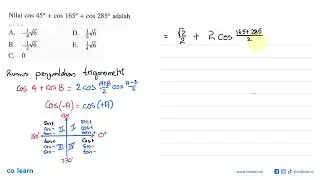 Nilai cos 45° + cos 165° + cos 285° adalah
....
A. -½√6 D. ¼√6
B. -½√6 E. ½√6
C. 0
Rumus penjumlahan trigonometri
cos A + cos B = 2 cos (A+B)/2 cos (A-B)/2
cos(-A) = cos(+A)
90°
sin+ sin+
cos- II I cos+
tan- tan+
180° 0°
sin- III IV sin-
cos- cos+
tan+ tan-
270°
= √2/2 + 2 cos (165+285)/2
co learn
www.colearn.id
@colearn.id